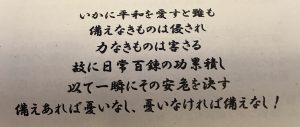 いかに平和を愛すと雖も
備えなきものは侵され
力なきものは害さる
故に日常百錬の功累積し
以て一瞬にその安危を決す
備えあれば憂いなし、憂いなければ備えなし！